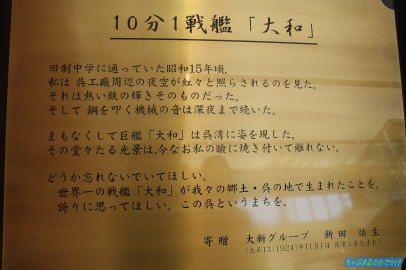 10分1戦艦「大和」
旧制中学に通っていた昭和15年頃、
私は 呉工廠周辺の夜空が紅々と照らされるのを見た。
それは熱い鉄の輝きそのものだった。
そして 鋼を叩く機械の音は深夜まで続いた。
まもなくして巨艦「大和」は呉湾に姿を現した。
その堂々たる光景は、今なお私の瞼に焼き付いて離れない。
どうか忘れないでいてほしい。
世界一の戦艦「大和」が我々の郷土・呉の地で生まれたことを。
誇りに思ってほしい。この呉というまちを。
寄 贈　大新グループ　新田 祐生
(大正13[1924]年11月1日 呉市三条生まれ)